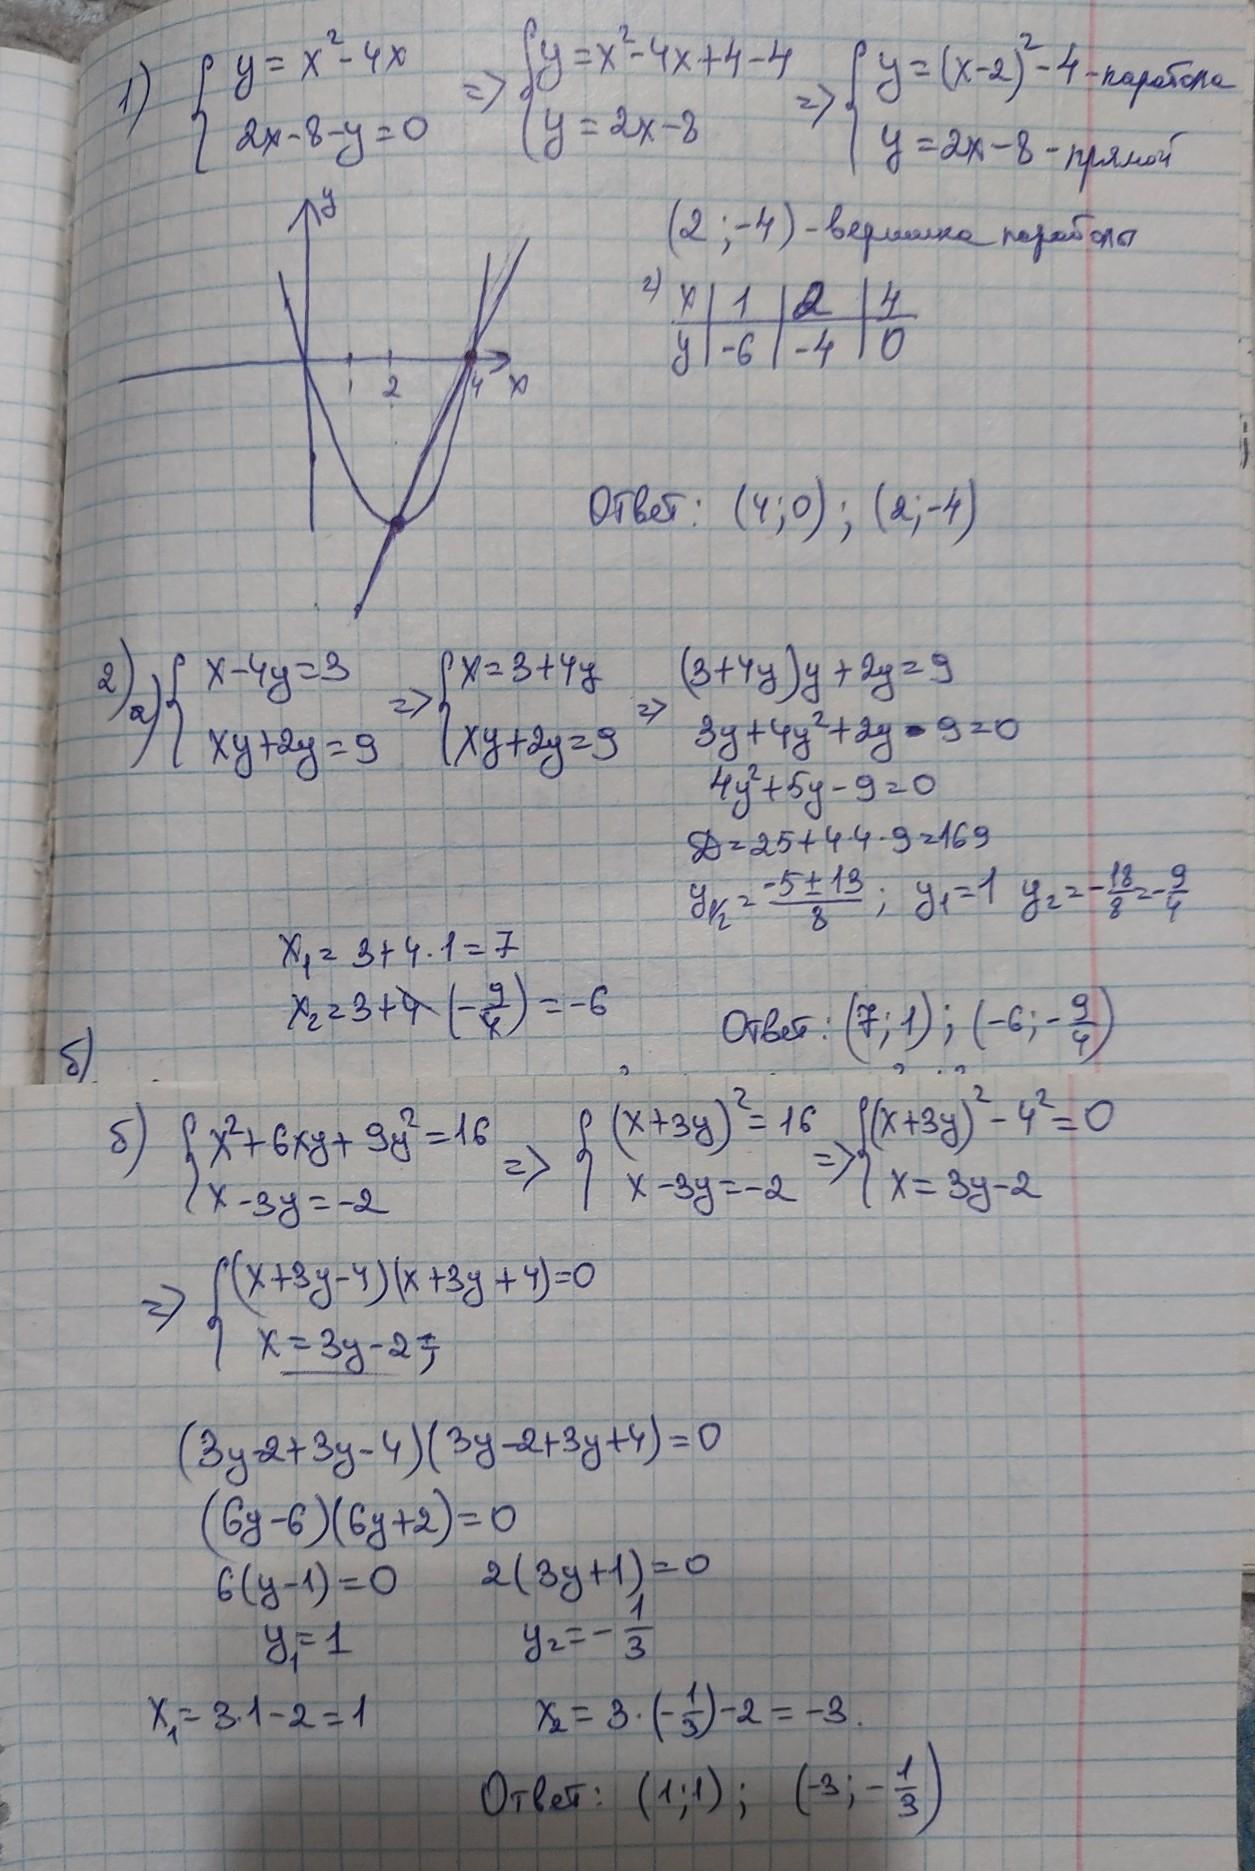 1) { y = x² - 4x => { y = x² - 4x + 4 - 4 => { y = (x-2)² - 4 - парабола
2x - 8 - y = 0 y = 2x - 8 y = 2x - 8 - прямой
y
(2 ; -4) - вершина параболы
2) x | 1 | 2 | 4
y | -6 | -4 | 0
1 2 4 x
Ответ: (4; 0) ; (2; -4)
2) а) { x - 4y = 3 => { x = 3 + 4y => (3+4y)y + 2y = 9
xy + 2y = 9 xy + 2y = 9 3y + 4y² + 2y - 9 = 0
4y² + 5y - 9 = 0
D = 25 + 4·4·9 = 169
y1/2 = (-5 ± 13)/8 ; y₁ = 1 y₂ = -18/8 = -9/4
x₁ = 3 + 4·1 = 7
x₂ = 3 + 4 (-9/4) = -6
Ответ: (7; 1) ; (-6; -9/4)
б)
б) { x² + 6xy + 9y² = 16 => { (x+3y)² = 16 => { (x+3y)² - 4² = 0
x - 3y = -2 x - 3y = -2 x = 3y - 2
=> { (x+3y-4)(x+3y+4) = 0
x = 3y - 2
(3y-2+3y-4)(3y-2+3y+4) = 0
(6y-6)(6y+2) = 0
6(y-1) = 0 2(3y+1) = 0
y₁ = 1 y₂ = -1/3
x₁ = 3·1 - 2 = 1 x₂ = 3·(-1/3) - 2 = -3.
Ответ: (1; 1) ; (-3; -1/3)